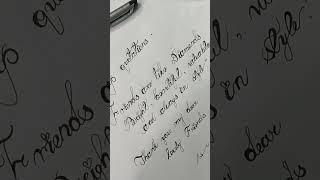 quotations.
Friends are like Diamonds
Bright, beautiful, valuable
and always in style"
Thank you my dear
lovely Friends